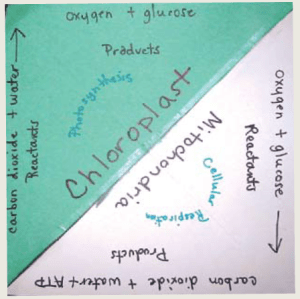 oxygen + glucose
Products
Photosynthesis
carbon dioxide + water
Reactants
Chloroplast
Mitochondria
Cellular
Respiration
oxygen + glucose
Reactants
Products
carbon dioxide + water + ATP